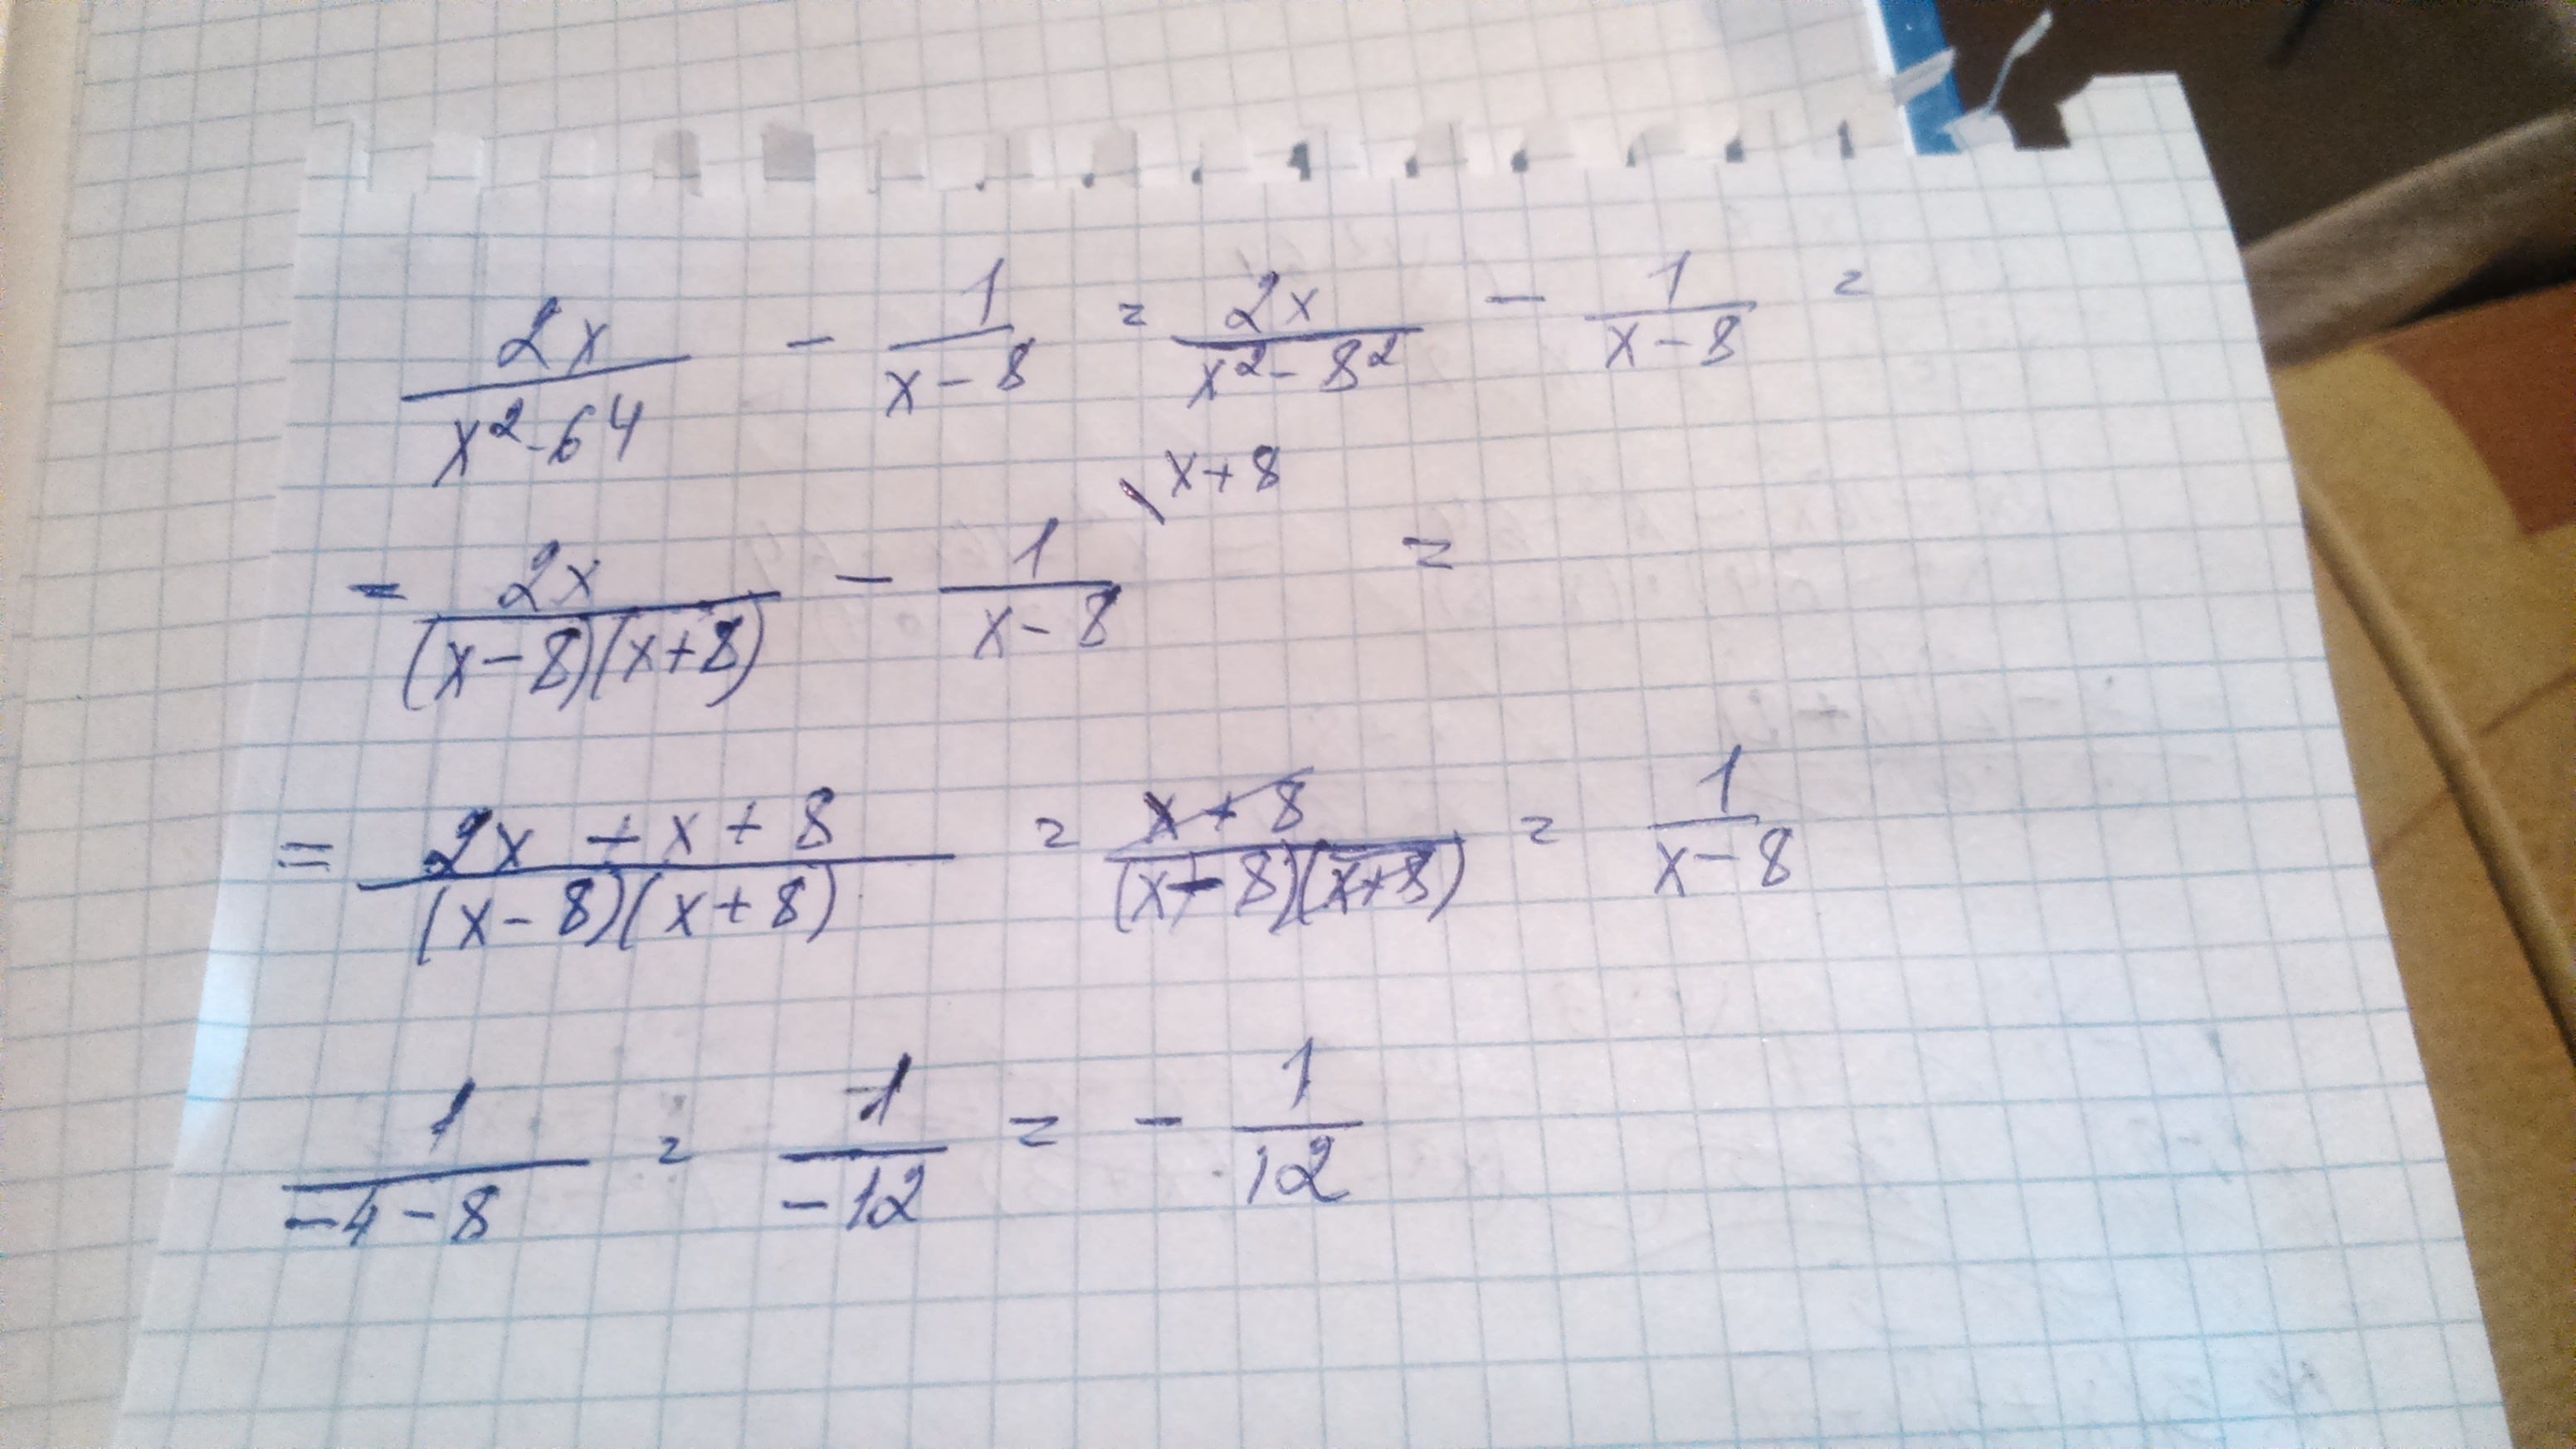 2x/(x²-64) - 1/(x-8) = 2x/(x²-8²) - 1/(x-8) =
= 2x/((x-8)(x+8)) - 1/(x-8) \x+8 =
= (2x + x + 8)/((x-8)(x+8)) = (x+8)/((x-8)(x+8)) = 1/(x-8)
1/(-4-8) = 1/(-12) = - 1/12